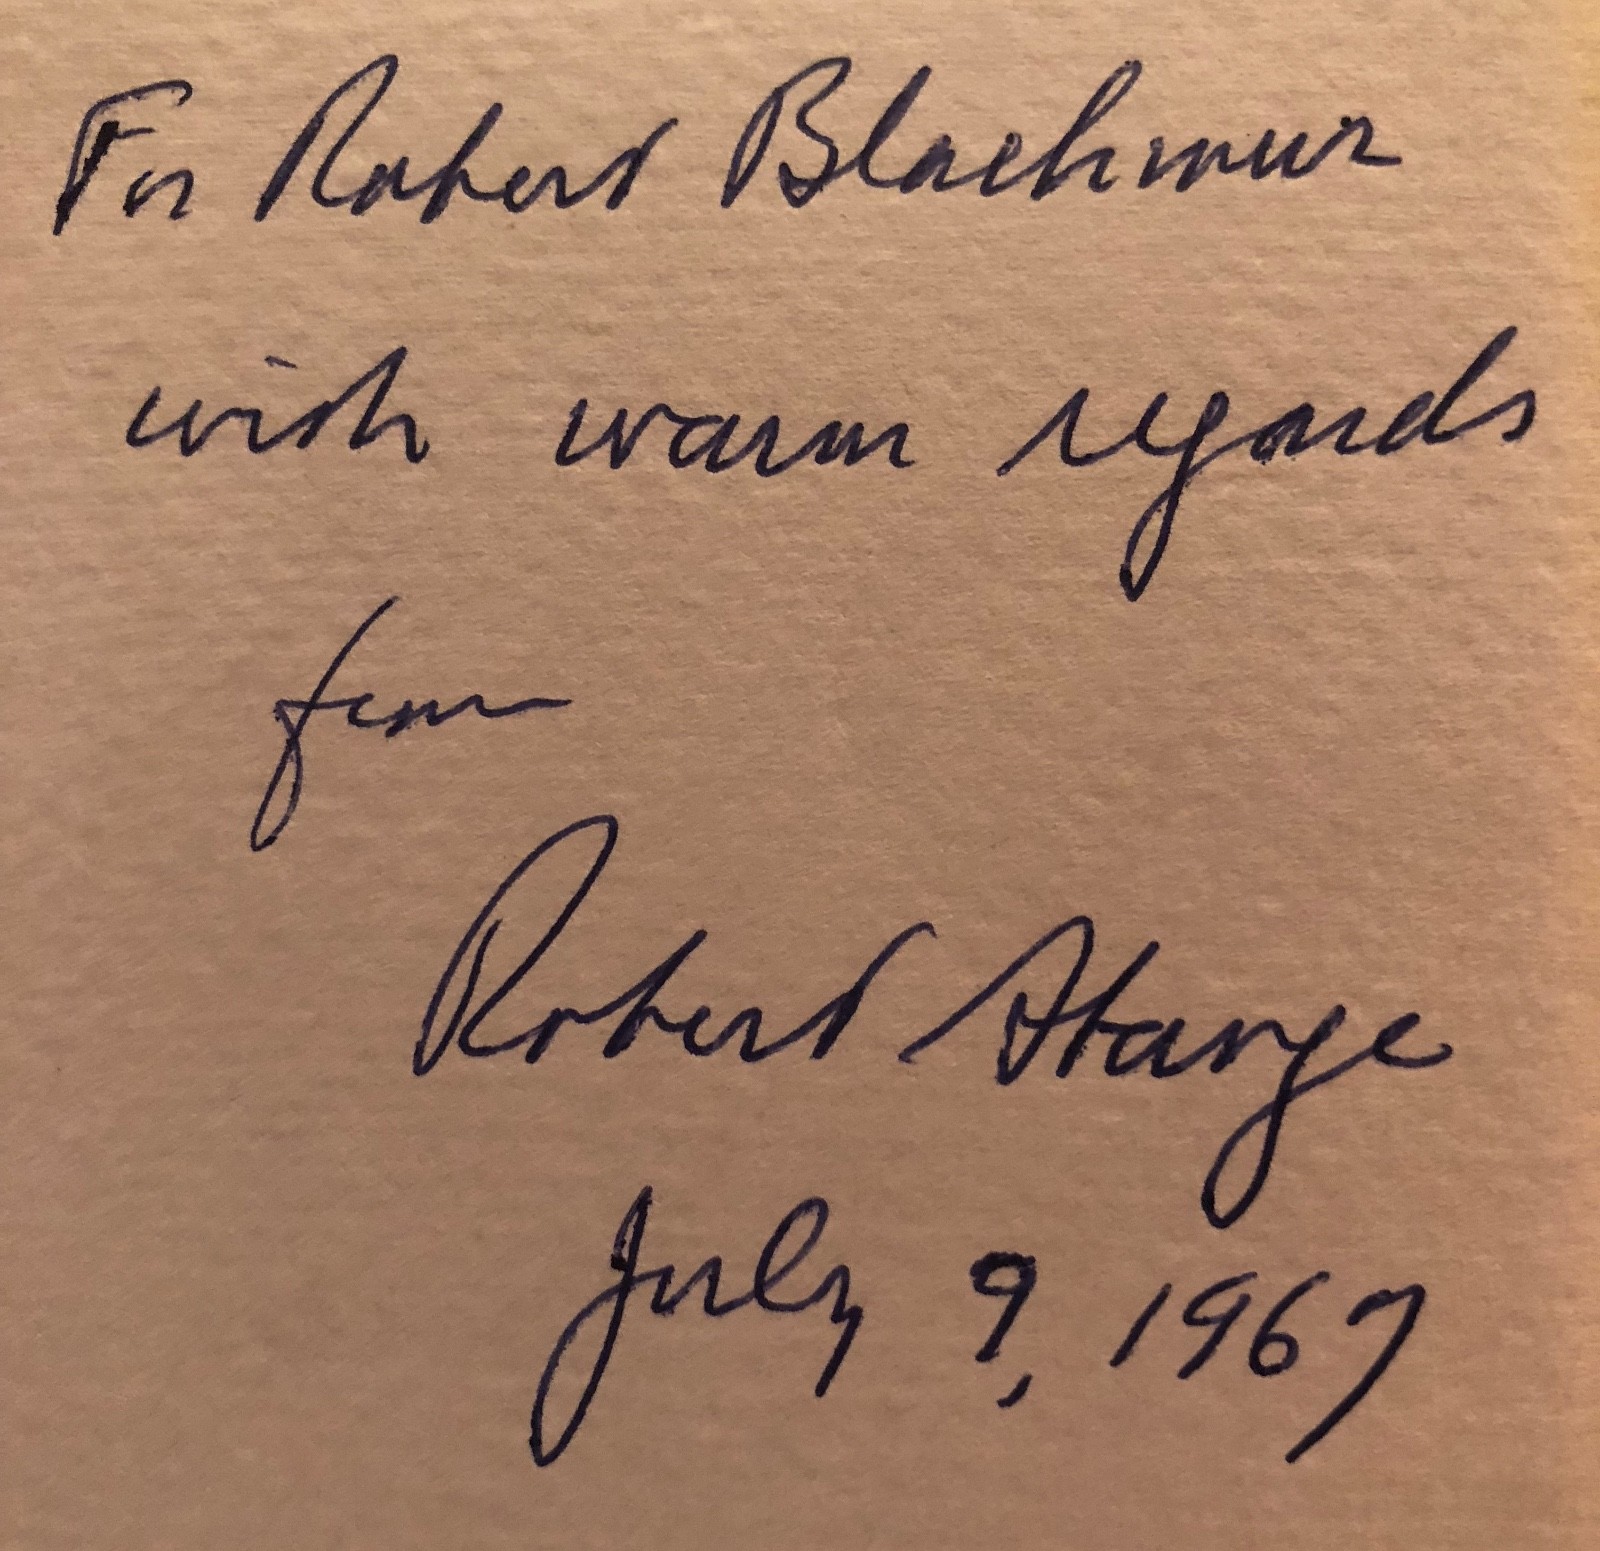 For Robert Blackmur
with warm regards
from
Robert Stange
July 9, 1967